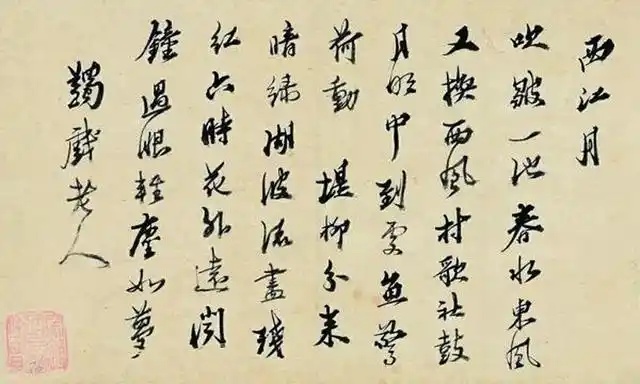 西江月
吹皺一池春水東風
又換西風村歌社鼓
月明中到處魚驚
荷動 堤柳分来
暗綠湖波流盡殘
紅六時花外遠聞
鐘過眼輕塵如夢
蠲戲老人